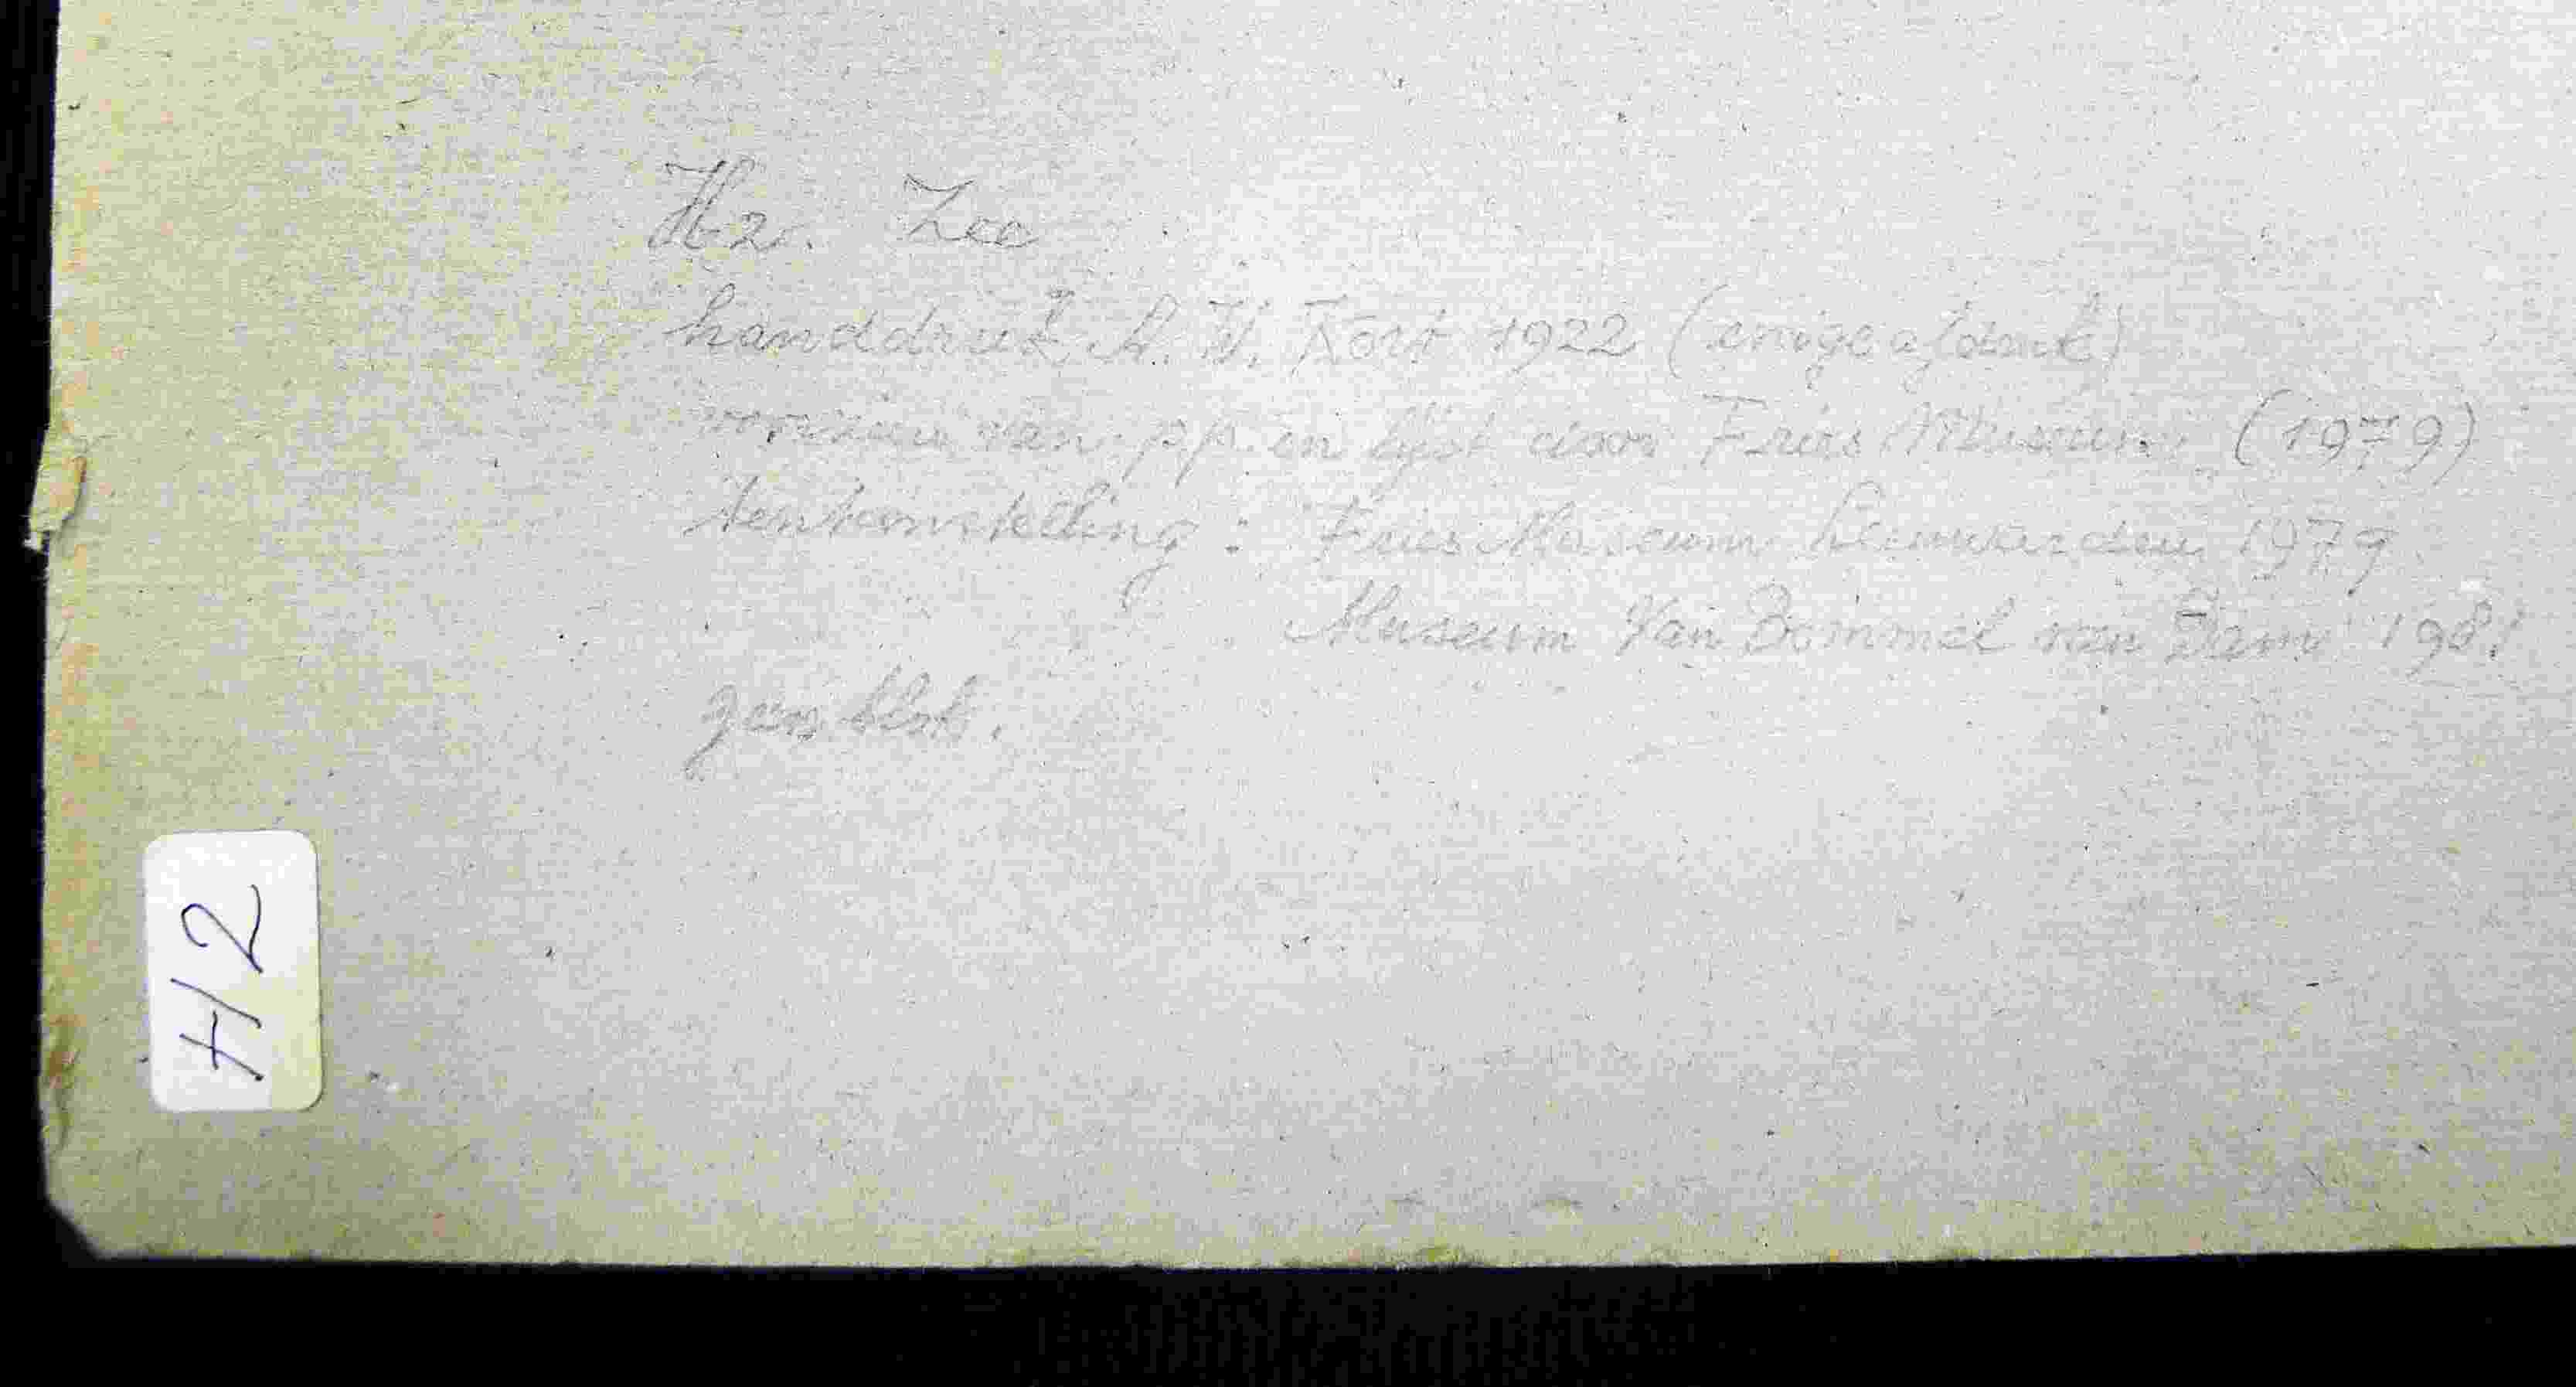 H2. Zee
handdruk A. W. Kort 1922 (enige afdruk)
voorzien van pp en lijst door Fries Museum (1979)
tentoonstelling: Fries Museum Leeuwarden 1979
Museum Van Bommel van Dam 1981
H2